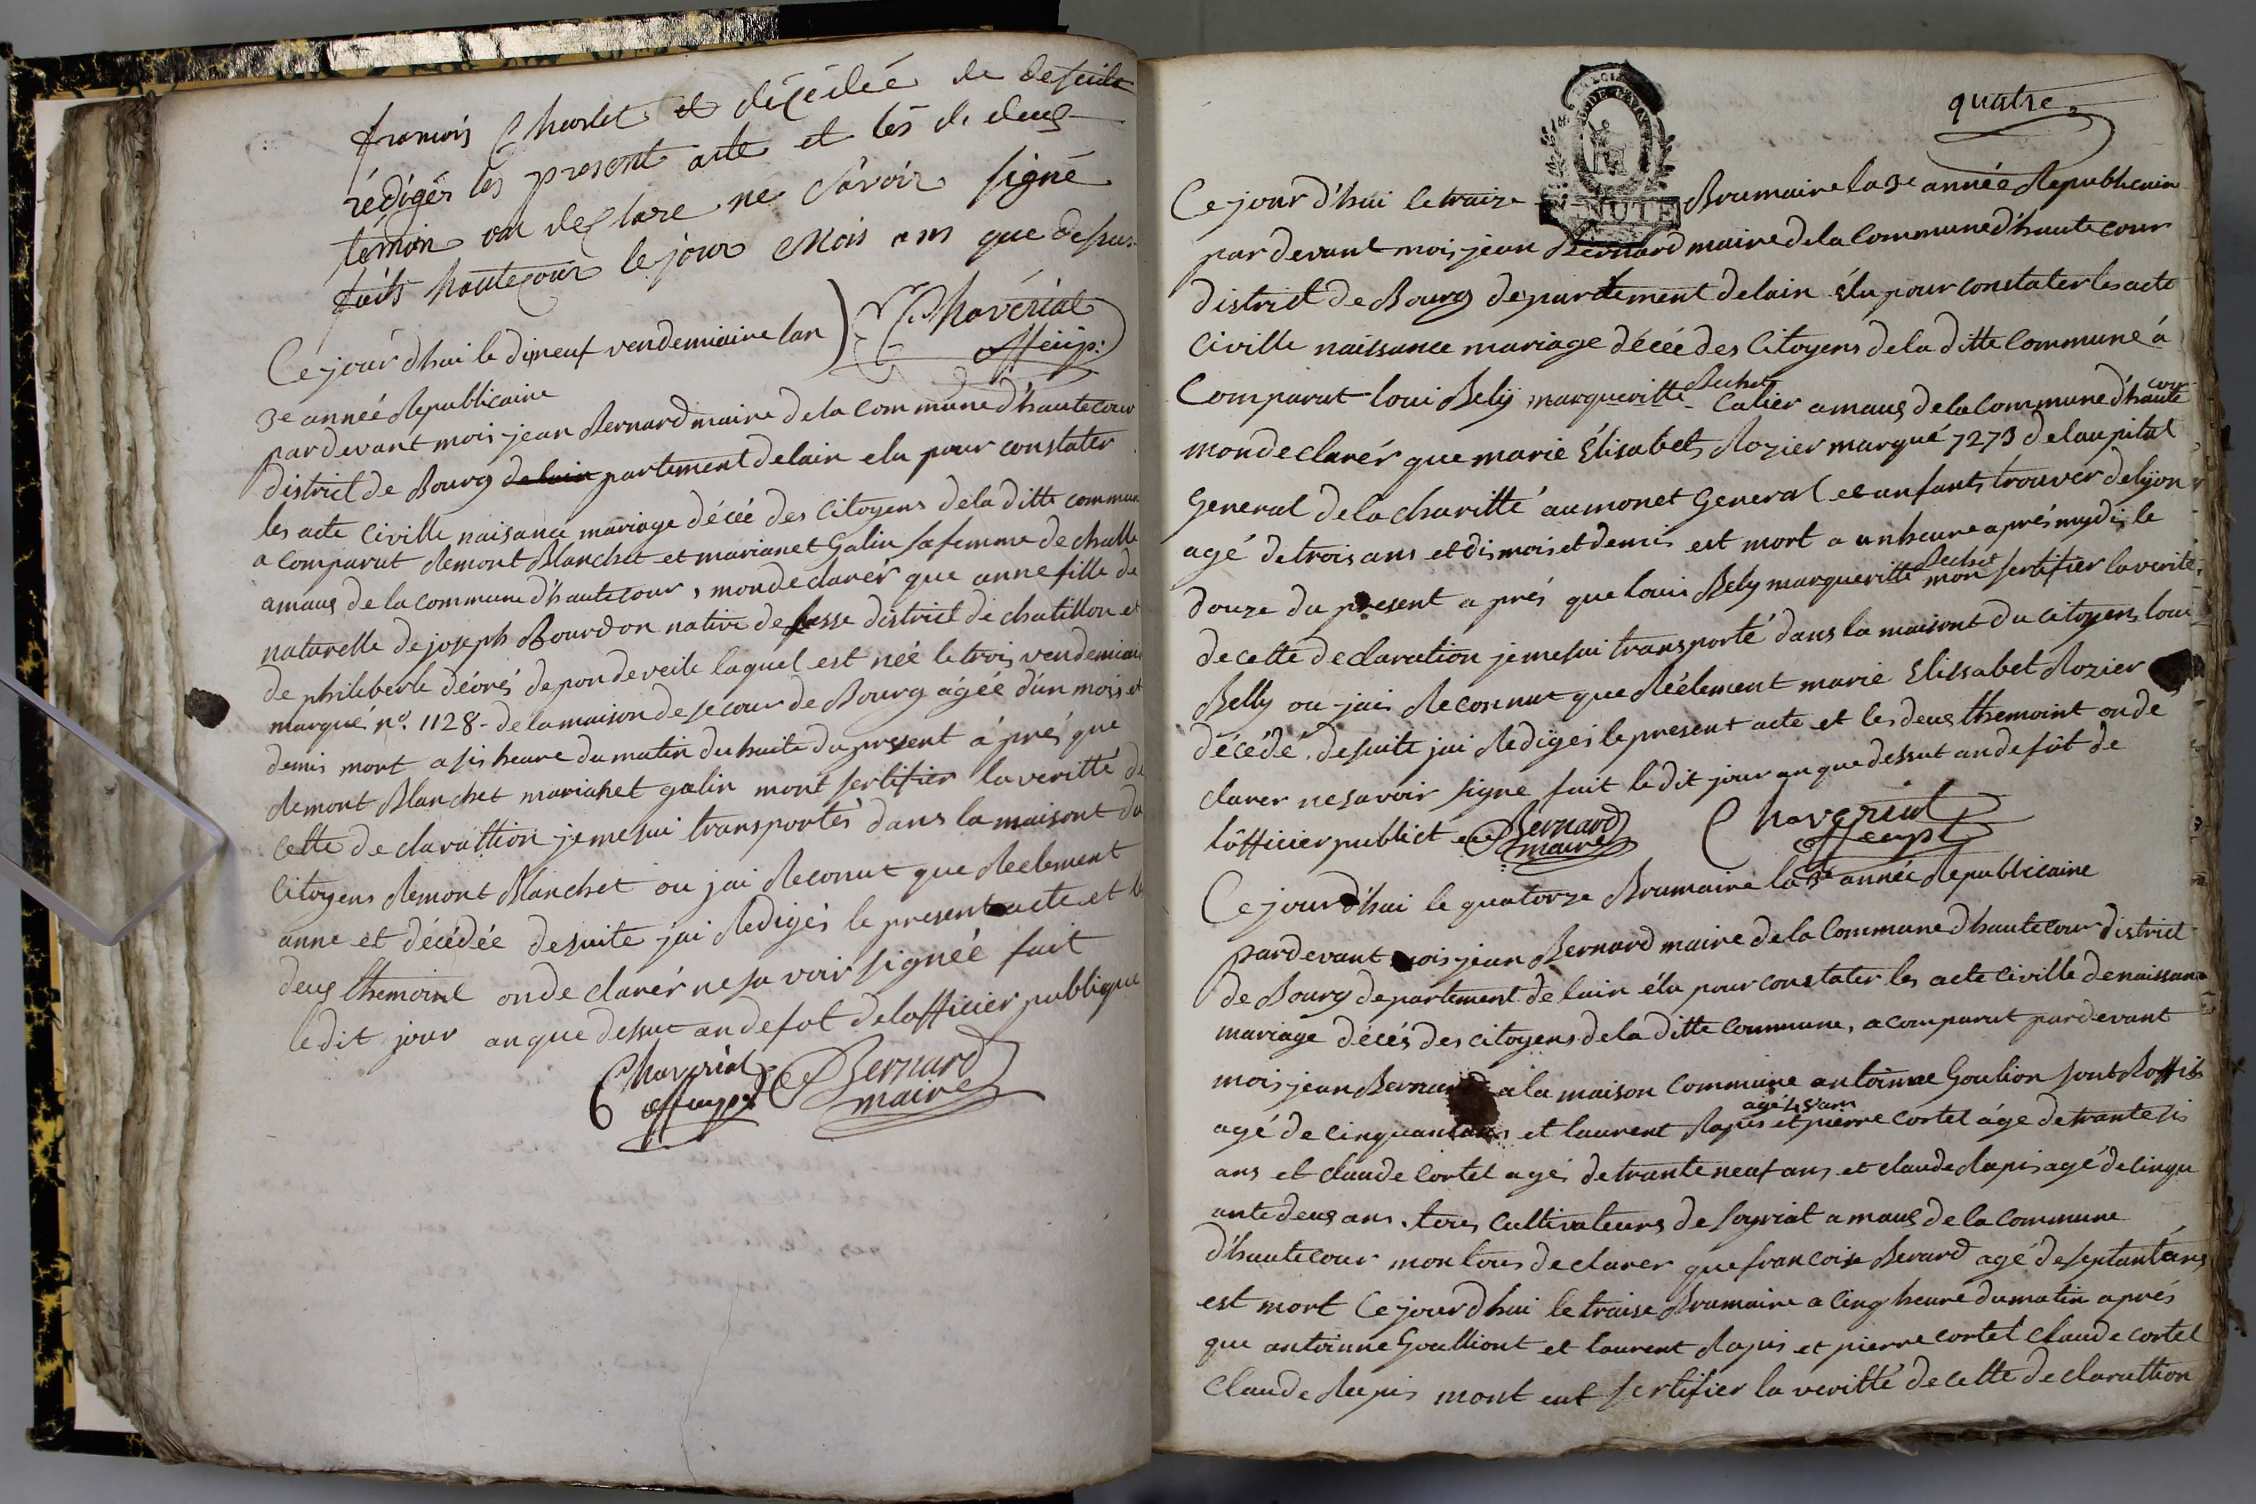 francois Charlet et décédée de desuite
rédigér les present acte et les de deus
témoin on declare ne sàvoir signé
faits hautecour le jour Mois ans que desus
Chavérial
officip:
Ce jour d'hui le dineuf vendemiaire lan
3e année Republicaine
pardevant mois jean Bernard maire dela commune d'hautecour
district de Bourg delain partement delain elu pour constater
les acte Civille naisance mariage décée des Citoyens dela ditte commun
a comparut Remont Blanchet et marianet Galin safemme de challe
amaus de la commune d'hautecour, mondeclarér que anne fille de
naturelle de joseph Bourdon native de fasse district de chatillon et
de philiberte déoré de pondeveile laquel est née le trois vendemiair
marqué no. 1128 - de lamaison de secour de Bourg ágée d'un mois et
demis mort a sis heure du matin du huite du present á prés que
Remont Blanchet marianet galin mont sertifier la veritté de
cette declarattion jemesui transportés dans la maisont du
Citoyens Remont Blanchet ou jai Reconut que Reelement
anne et décédée desuite j'ai Redigés le present acte et le
deus themoint onde clarér nesavoir signéé fait
ledit jour anque dessut andefot delofficier publique
Chaverial
officip:
Bernard
maire
quatre
MINUTE
Ce jour d'hui le traize Brumaire la 3e année Republicain
pardevant mois jean Bernard maire dela Commune d'hautecour
district de Bourg departement delain élu pour constater les acte
Civille naissance mariage décée des Citoyens dela ditte Commune á
Comparut loui Bely marguevitte Bechet Calier amaus dela Commune d'haute cour
mondeclarér que marié Élisabet Rozier marqué 7273 delaupital
General dela charitté aumonet General et anfants trouver delyon
agé detrois ans et dismois et demis est mort a unheure aprés mydis le
douze du present aprés que loui Bely marguevitte Bechet mon sertifier laverité
decette declaration jemesui transporté dans la maisont du Citoyens loui
Belly ou jai Reconnut que Réelement marie Elissabet Rozier
décédé. desuite jai Rediges lepresent acte et les deus themoint onde
clarer nesavoir signe fait ledit jour anque dessut andefôt de
lôfficier publict
Bernard
maire
Chaverial
officipl
Ce jour d'hui le quatorze Brumaire la 3e année Republicaine
pardevant mois jean Bernard maire dela Commune d'hautecour district
de Bourg departement delain élu pour constater les acte civille denaissance
mariage décés des citoyens dela ditte Commune, a comparut pardevant
mois jean Bernard a la maison Commune antoinne Goulion
agé de cinquante ans et laurent Rapis agé 45 ans et pierre cortel áge detrante sis
ans et claude Cortel agés detrante neuf ans et claude Rapis agé decinqu
ante deus ans. tous Cultivateurs de soyriat amaus de la commune
d'hautecour mon tous declarer que francoise Berard agé deseptante ans
est mort Ce jour d'hui le traise Brumaire a cinq heure du matin aprés
que antoinne Goulliont et laurent Rapis et pierre cortel claude cortel
Claude Rapis mont eut sertifier la veritté decette declarattion